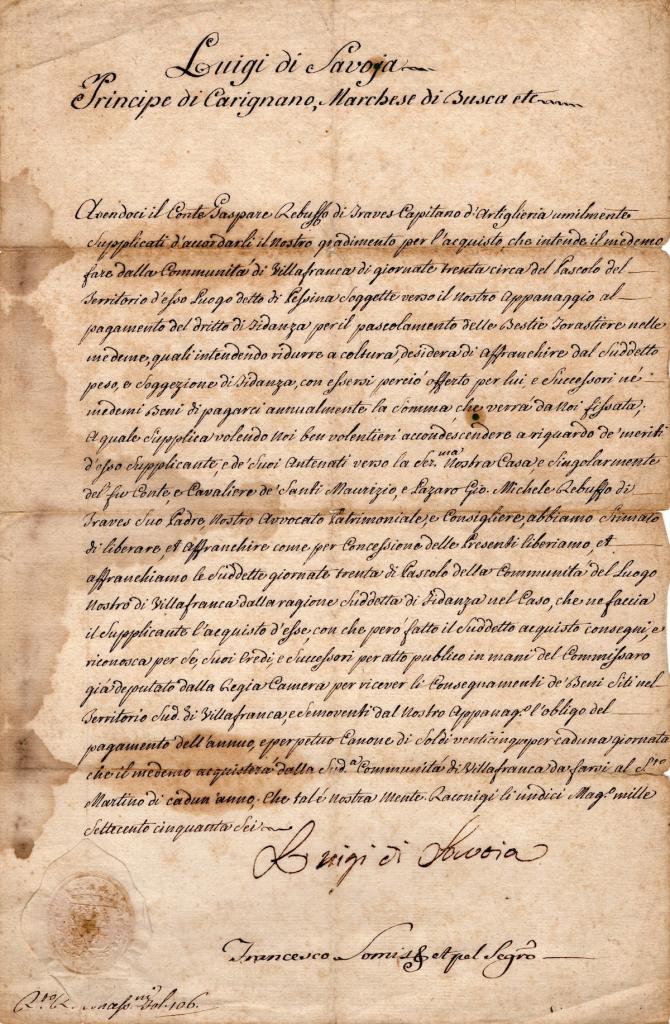 Luigi di Savoja
Principe di Carignano, Marchese di Busca etc
Avendoci il Conte Gaspare Rebuffo di Traves Capitano d'Artiglieria umilmente
Supplicati d'accordarli il nostro gradimento per l'acquisto, che intende il medemo
fare dalla Communità di Villafranca di giornate trenta circa del Pascolo del
Territorio d'esso Luogo detto di Pessina Soggette verso il nostro Appanaggio al
pagamento del dritto di Fidanza per il pascolamento delle Bestie Forastiere nelle
medeme, quali intendendo ridurre a coltura, desidera di affranchire dal Suddetto
peso, e Soggezione di Fidanza, con essersi perciò offerto per lui, e Successori né
medemi Beni di pagarci annualmente la Somma, che verrà da noi fissata;
A quale Supplica volendo noi ben volentieri accondescendere a riguardo de' meriti
d'esso Supplicante, e de' Suoi Antenati verso la nostra Casa e Singolarmente
del fu Conte, e Cavaliere de' Santi Maurizio, e Lazaro Gio. Michele Rebuffo di
Traves Suo Padre, nostro Avvocato Patrimoniale, e Consigliere, abbiamo Stimato
di liberare, et Affranchire come per Concessione delle Presenti liberiamo, et
affranchiamo le Suddette giornate trenta di Pascolo della Communità del Luogo
Nostro di Villafranca dalla ragione Suddetta di Fidanza nel Caso, che ne faccia
il Supplicante l'acquisto d'esse, con che però fatto il Suddetto acquisto consegni, e
riconosca per Se, Suoi Eredi, e Successori per atto publico in mani del Commissaro
già deputato dalla Regia Camera per ricever li Consegnamenti de' Beni Siti nel
Territorio Sud. di Villafranca, e Semoventi dal Nostro Appanag.o l'obligo del
pagamento dell'annuo, e perpetuo Canone di Soldi venticinque per caduna giornata
che il medemo acquisterà dalla Sud.a Communità di Villafranca da farsi al
Martino di cadun'anno, Che tal é nostra mente. Raconigi li undici Mag.o mille
Settecento cinquanta Sei
Luigi di Savoia
Francesco
Vol. 106.